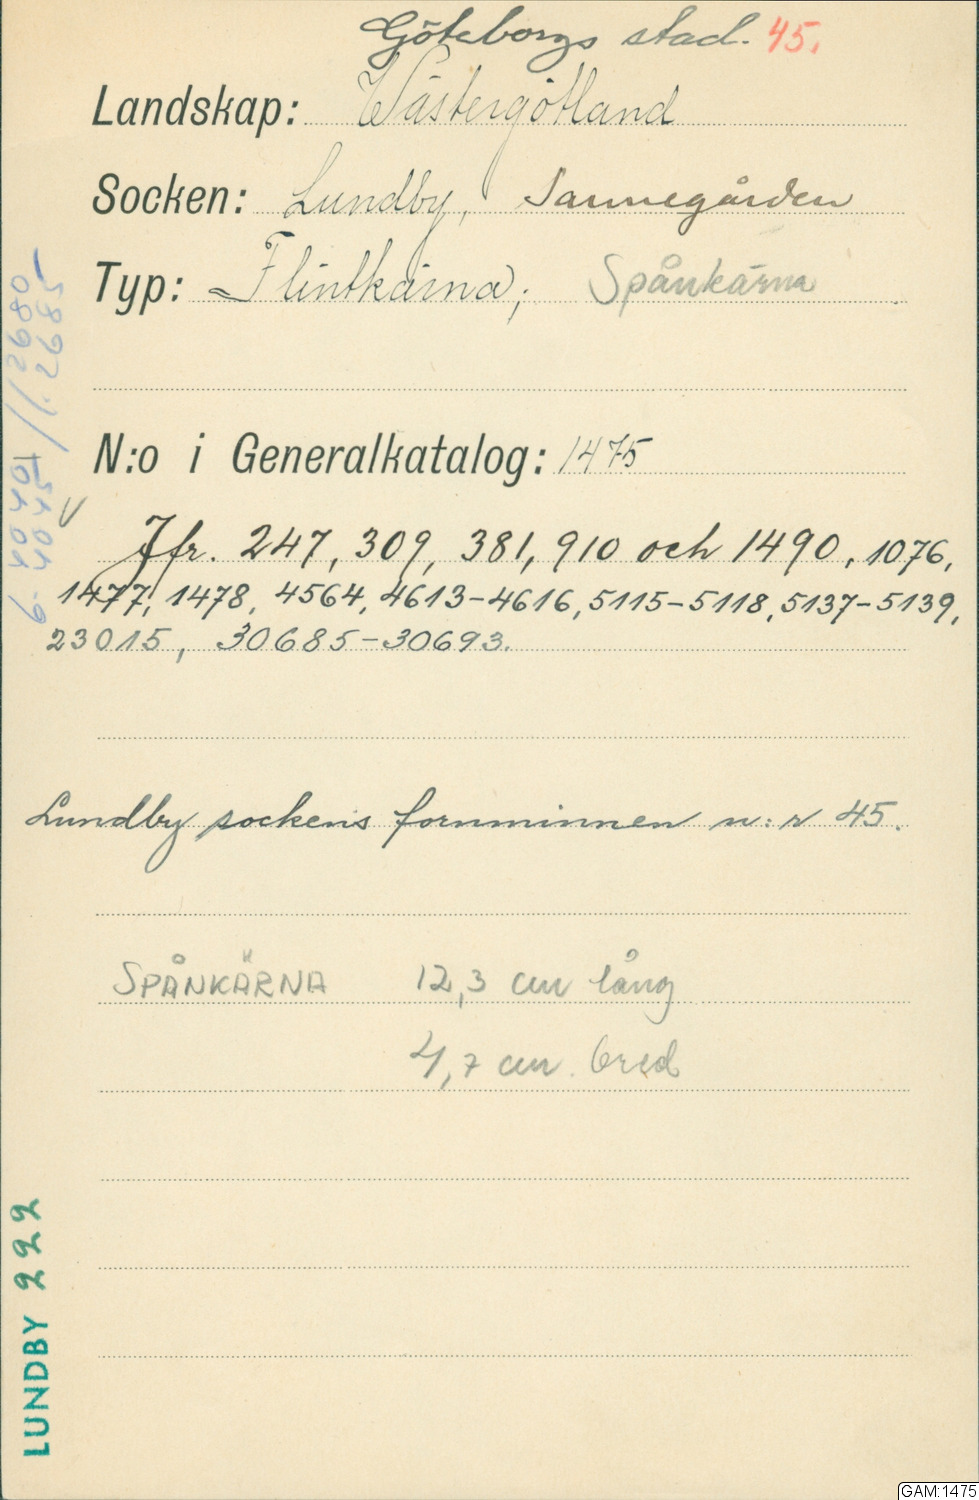 Göteborgs stad. 45.
Landskap: Västergötland
Socken: Lundby, Sannegården
Typ: Flintkärna; Spånkärna
N:o i Generalkatalog: 1475
Jfr. 247, 309, 381, 910 och 1490, 1076,
1477, 1478, 4564, 4613-4616, 5115-5118, 5137-5139,
23015, 30685-30693.
Lundby sockens fornminnen n:r 45.
SPÅNKÄRNA 12,3 cm lång
4,7 cm bred
LUNDBY 222
GAM:1475